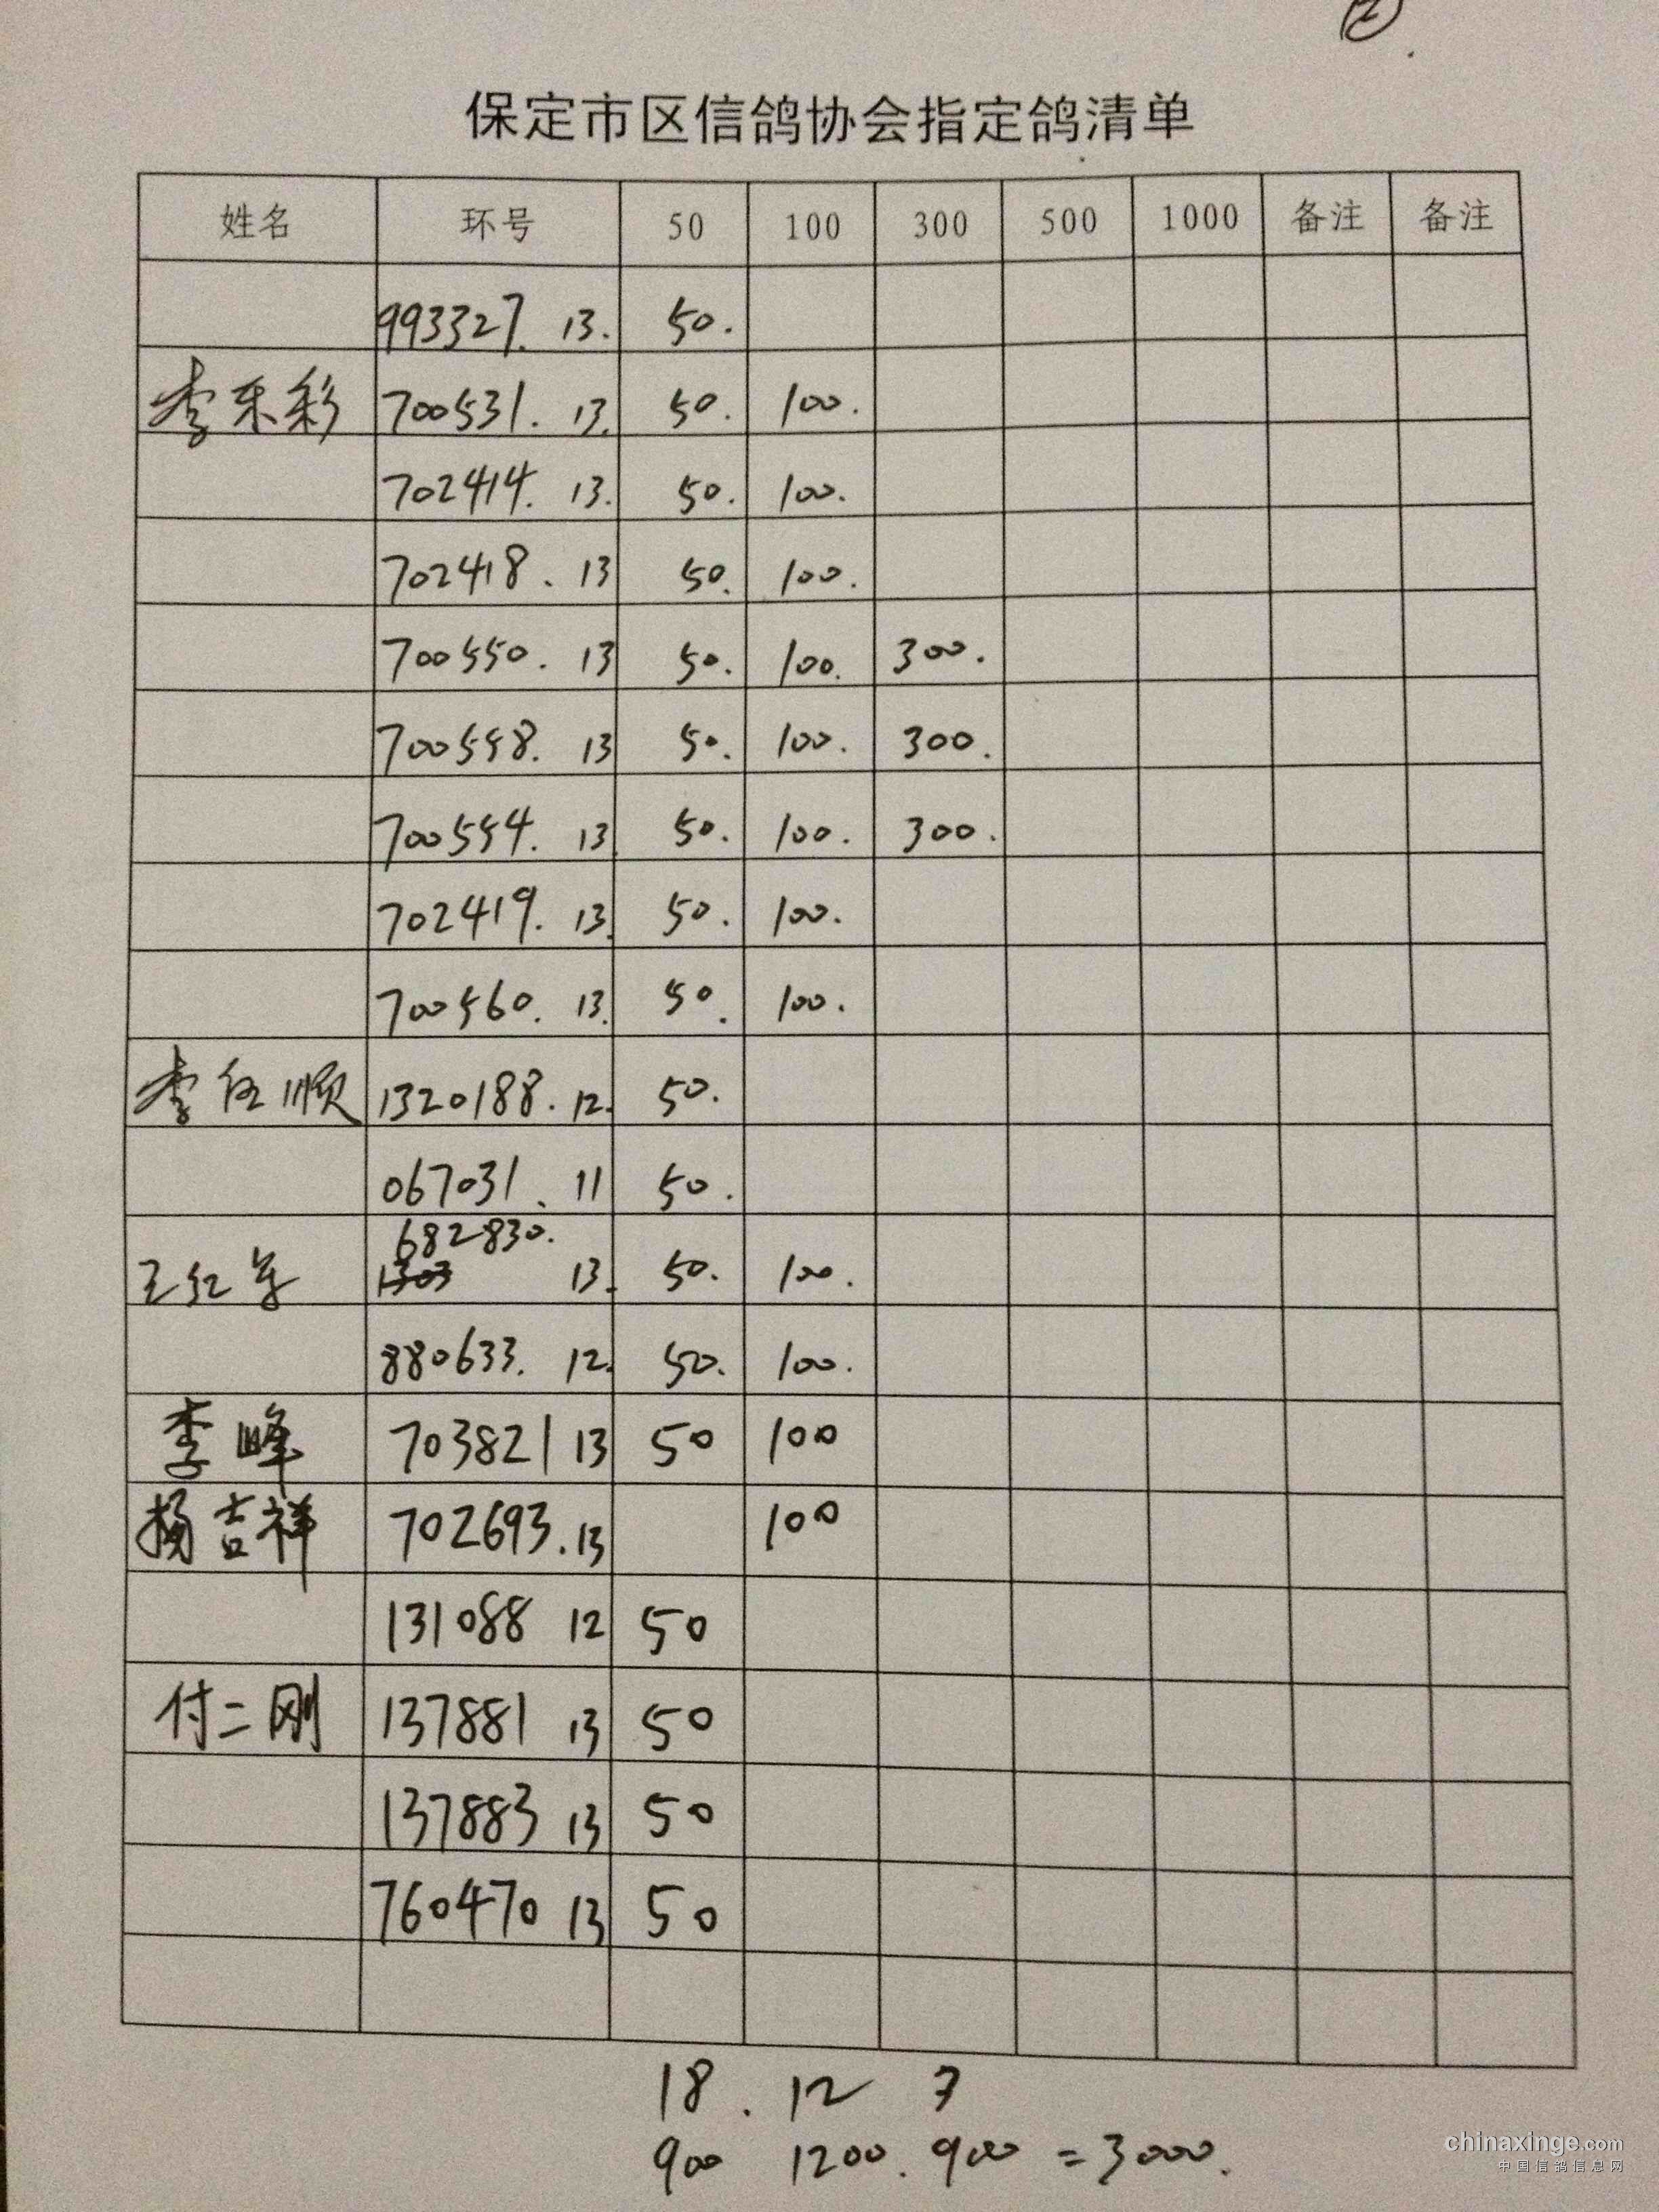 ②
保定市区信鸽协会指定鸽清单
姓名 环号 50 100 300 500 1000 备注 备注
993327. 13. 50.
李乐彩 700531. 13. 50. 100.
702414. 13. 50. 100.
702418. 13 50. 100.
700550. 13 50. 100. 300.
700558. 13 50. 100. 300.
700554. 13 50. 100. 300.
702419. 13. 50. 100.
700560. 13. 50. 100.
李伍顺 1320188. 12. 50.
067031. 11 50.
682830.
王红军 1303 13. 50. 100.
880633. 12. 50. 100.
李峰 703821 13 50 100
杨吉祥 702693. 13 100
131088 12 50
付二刚 137881 13 50
137883 13 50
760470 13 50
18. 12 3
900 1200. 900 = 3000.
chinaxinge.com
中国信鸽信息网